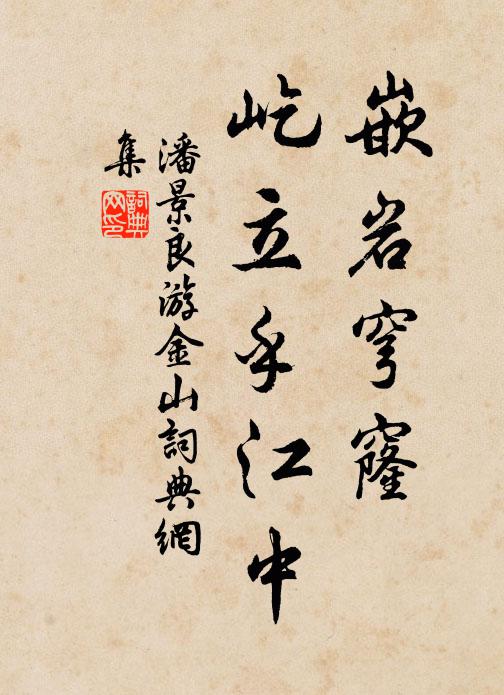 嵌岩穹窿
屹立乎江中
潘景良游金山詞典網
集
詞典
网印